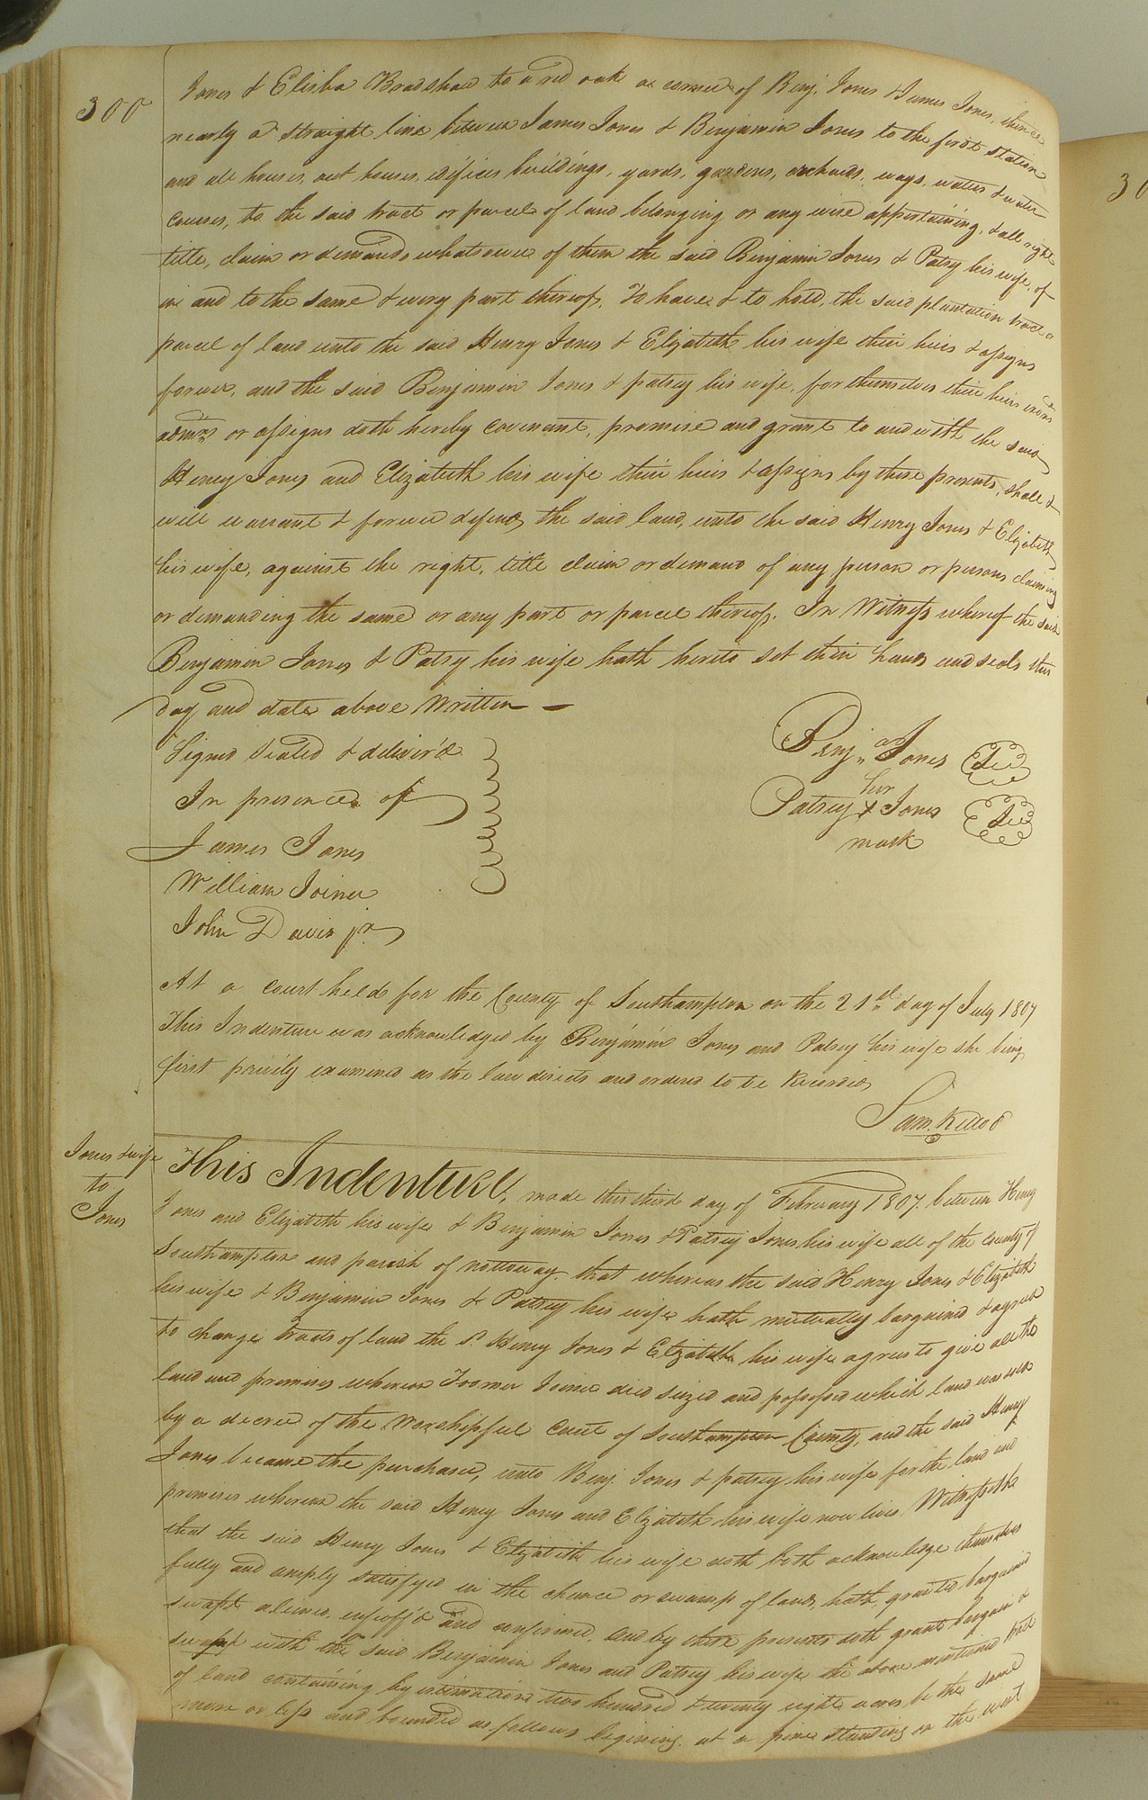 300
Jones & Elisha Bradshaw to a red oak a corner of Benj. Jones & James Jones, thence
nearly a straight line between James Jones & Benjamin Jones to the first station
and all houses, out houses, edifices buildings, yards, gardens, orchards, ways, waters & water
courses, to the said tract or parcel of land belonging or any wise appertaining, & all right
title, claim or demands whatsoever of them the said Benjamin Jones & Patsy his wife, of
in and to the same & every part thereof, To have & to hold, the said plantation tract or
parcel of land unto the said Henry Jones & Elizabeth his wife their heirs & assigns
forever, and the said Benjamin Jones & patsey his wife, for themselves their heirs exors
admrs or assigns doth hereby covenant, promise and grant to and with the said
Henry Jones and Elizabeth his wife their heirs & assigns by these presents, shall &
will warrant & forever defend the said land, unto the said Henry Jones & Elizabeth
his wife, against the right, title claim or demand of any person or persons claiming
or demanding the same or any part or parcel thereof. In Witness whereof the said
Benjamin Jones & Patsy his wife hath hereto set their hands and seals this
day and date above Written —
Signed Sealed & deliver'd
In presence of
James Jones
William Joiner
John Davis jr.
Benjn Jones
her
Patsey X Jones
mark
At a court held for the County of Southampton on the 21st day of July 1807
This Indenture was acknowledged by Benjamin Jones and Patsey his wife she being
first privily examined as the law directs and ordered to be Recorded
Sam. Kello
Jones & wife
to
Jones
This Indenture, made this third day of February 1807. between Henry
Jones and Elizabeth his wife & Benjamin Jones & Patsey Jones his wife all of the County of
Southampton and parish of nottoway. that whereas the said Henry Jones & Elizabeth
his wife & Benjamin Jones & Patsey his wife hath mutually bargained & agreed
to change tracts of land the sd. Henry Jones & Elizabeth his wife agrees to give all the
land and premises whereon Toomer Joiner died seized and possessed which land was sold
by a decree of the Worshipful Court of Southampton County, and the said Henry
Jones became the purchaser, unto Benj. Jones & patsey his wife for the land and
premises whereon the said Henry Jones and Elizabeth his wife now lives. Witnesseth
that the said Henry Jones & Elizabeth his wife doth both acknowledge themselves
fully and amply satisfyed in the chance or swamp of land, hath, granted, bargained
swapt aliened, enfeoff'd and confirmed, and by these presents doth grant bargain &
swap with the said Benjamin Jones and Patsey his wife the above mentioned tract
of land containing by estimation two hundred & twenty eight acres be the same
more or less and bounded as follows begining. at a pine standing on the west